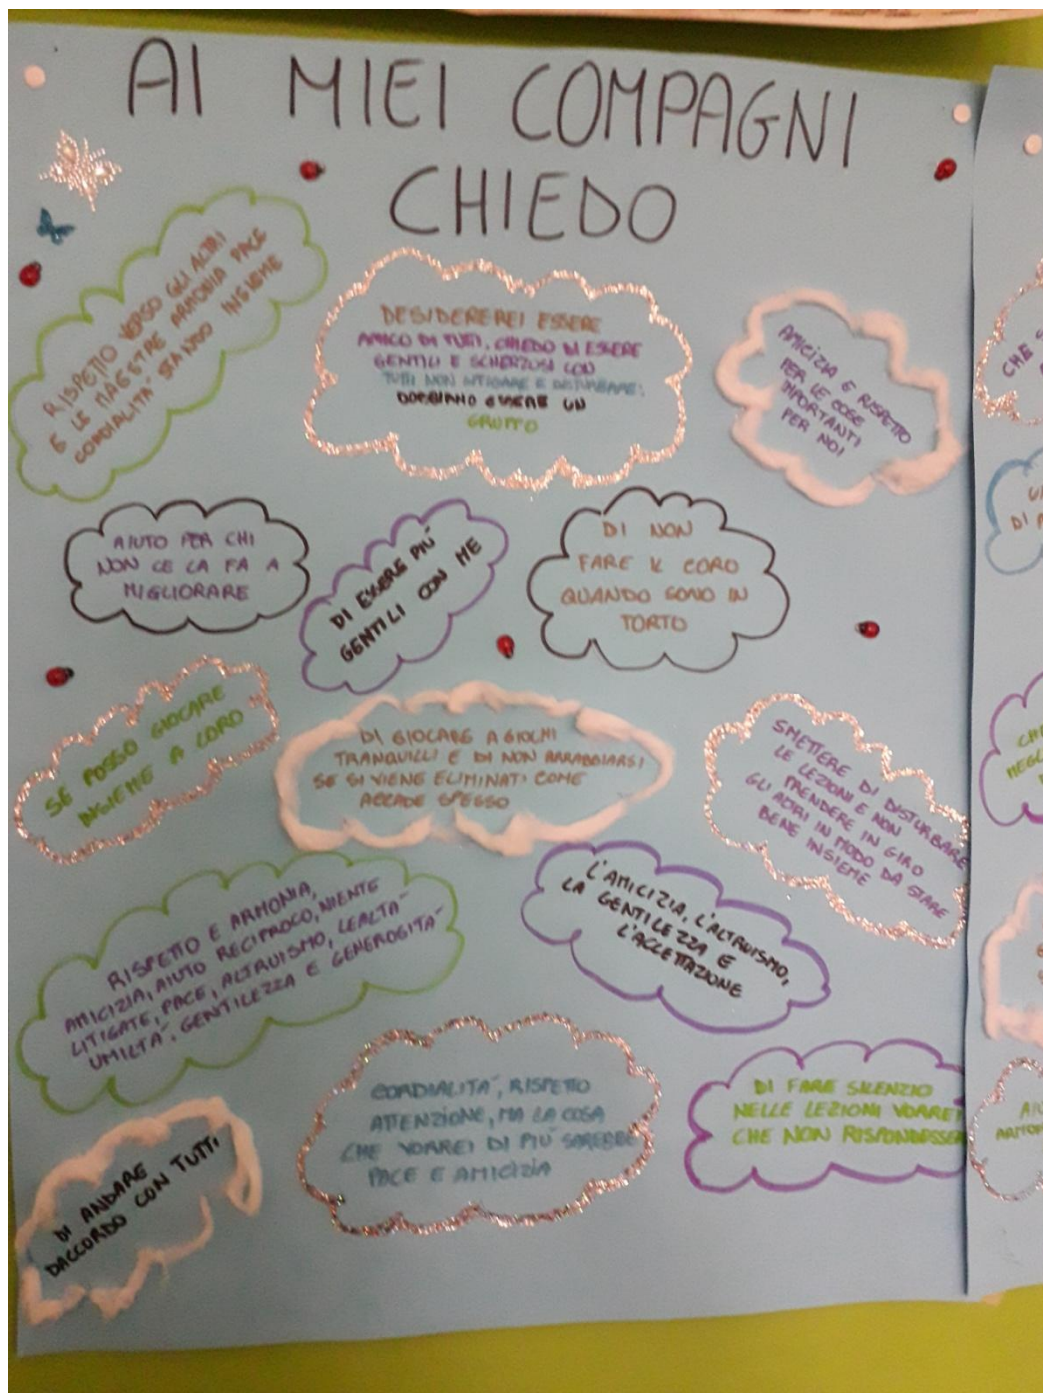 AI MIEI COMPAGNI
CHIEDO
RISPETTO VERSO GLI ALTRI
E LE MAESTRE ARMONIA PACE
CORDIALITA' STANDO INSIEME
DESIDEREREI ESSERE
AMICO DI TUTTI, CHIEDO DI ESSERE
GENTILI E SCHERZOSI CON
TUTTI NON LITIGARE E DISTURBARE:
DOBBIAMO ESSERE UN
GRUPPO
AMICIZIA E RISPETTO
PER LE COSE
IMPORTANTI
PER NOI
AIUTO PER CHI
NON CE LA FA A
MIGLIORARE
DI ESSERE PIU'
GENTILI CON ME
DI NON
FARE IL CORO
QUANDO SONO IN
TORTO
SE POSSO GIOCARE
INSIEME A LORO
DI GIOCARE A GIOCHI
TRANQUILLI E DI NON ARRABBIARSI
SE SI VIENE ELIMINATI COME
ACCADE SPESSO
SMETTERE DI DISTURBARE
LE LEZIONI E NON
PRENDERE IN GIRO
GLI ALTRI IN MODO DA STARE
BENE INSIEME
RISPETTO E ARMONIA,
AMICIZIA, AIUTO RECIPROCO, NIENTE
LITIGATE, PACE, ALTRUISMO, LEALTA'
UMILTA', GENTILEZZA E GENEROSITA'
L'AMICIZIA, L'ALTRUISMO,
LA GENTILEZZA E
L'ACCETTAZIONE
DI ANDARE
DACCORDO CON TUTTI
CORDIALITA', RISPETTO
ATTENZIONE, MA LA COSA
CHE VORREI DI PIU' SAREBBE
PACE E AMICIZIA
DI FARE SILENZIO
NELLE LEZIONI VORREI
CHE NON RISPONDESSER
CHE S
DI A